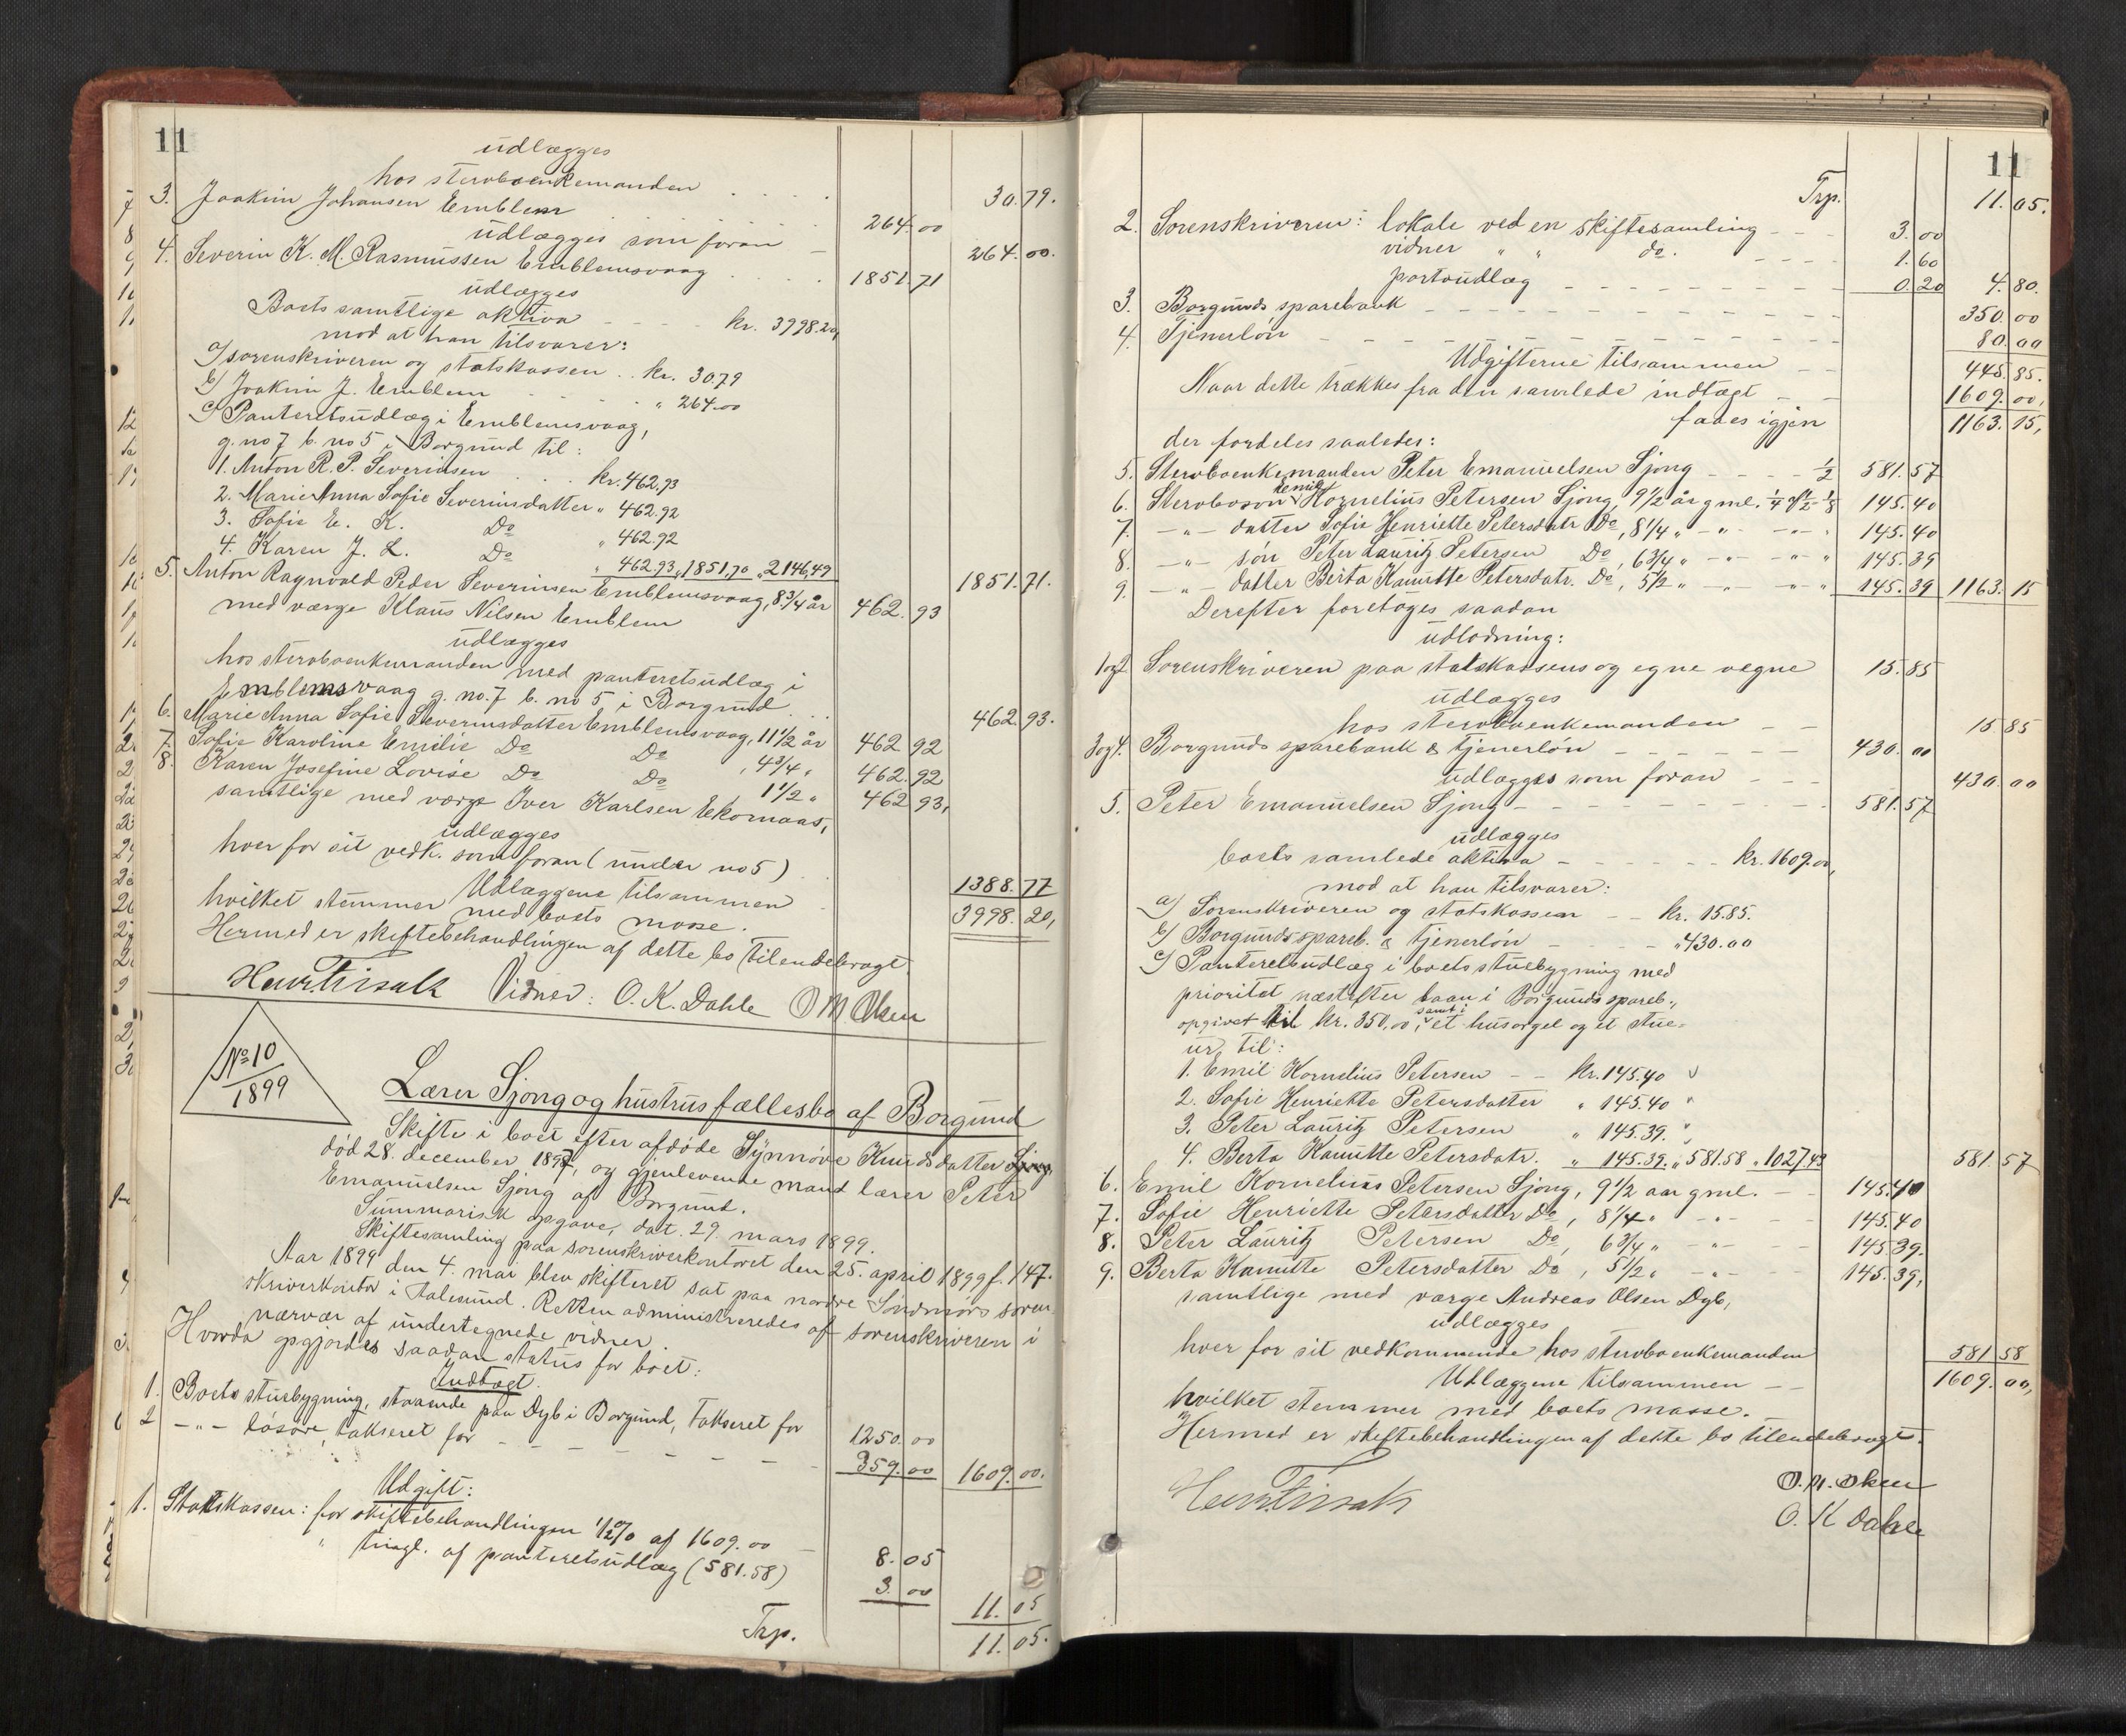 11
udlægges
hos sterboenkemanden . . . . 30.79.
3. Joakim Johansen Emblem . . . 264.00
udlægges som foran – 264.00.
4. Severin K. M. Rasmussen Emblemsvaag . . . . 1851.71
udlægges
Boets samtlige aktiva – – – – kr. 3998.20,
mod at han tilsvarer:
a) sorenskriveren og statskassen .. kr. 30.79
b) Joakim J. Emblem . . . . . " 264.00
c) Panteretsudlæg i Emblemsvaag,
g. no 7 b. no 5 i Borgund til:
1. Anton R. P. Severinsen . . . kr. 462.93
2. Marie Anna Sofie Severinsdatter " 462.92
3. Sofie E. K. Do " 462.92
4. Karen J. L. Do " 462.93 " 1851.70 " 2146.49
1851.71.
5. Anton Ragnvald Peder Severinsen Emblemsvaag, 8 3/4 år
med værge Klaus Nilsen Emblem 462.93
udlægges
hos sterboenkemanden med panteretsudlæg i
Emblemsvaag g. no. 7 b. no 5 i Borgund . . . 462.93.
6. Marie Anna Sofie Severinsdatter Emblemsvaag, 11 1/2 år 462 92
7. Sofie Karoline Emilie Do Do , 4 3/4 " 462.92
8. Karen Josefine Lovise Do Do , 1 1/2 " 462 93,
samtlige med værge Iver Karlsen Ekornaas,
udlægges
hver for sit vedk. som foran (under no 5) . . 1388.77
Udlæggene tilsammen – 3998.20,
hvilket stemmer med boets masse.
Hermed er skiftebehandlingen af dette bo tilendebragt.
Vidner: O. K. Dahle O M Olsen
No 10
1899
Lærer Sjong og hustrus fællesbo af Borgund
Skifte i boet efter afdøde Synnøve Knudsdatter Sjong,
død 28. december 1897, og gjenlevende mand lærer Peter
Emanuelsen Sjong af Borgund.
Summarisk opgave, dat. 29. mars 1899.
Skiftesamling paa sorenskriverkontoret den 25. april 1899 f. 147.
Aar 1899 den 4. mai blev skifteret sat paa nordre Søndmørs soren-
skriverkontor i Aalesund. Retten administreredes af sorenskriveren i
nærvær af undertegnede vidner.
Hvorda opgjordes saadan status for boet:
Indtægt.
1. Boets stuebygning, staaende paa Dyb i Borgund, takseret for 1250.00
2 – " – løsøre, takseret for – – – – – – – 359.00 1609.00.
Udgift:
1. Statskassen: for skiftebehandlingen 1/2% af 1609.00 – 8.05
" tingl. af panteretsudlæg (581.58) 3.00 11.05
Trp. 11.05.
11
Trp. 11.05.
2. Sorenskriveren: lokale ved en skiftesamling – – – 3.00
vidner " " do. – – – – 1.60
portoudlæg – – – – – – – – 0.20 4.80.
3. Borgunds sparebank – – – – – – – – – – – – 350.00
4. Tjenerløn – – – – – – – – – – – – – – – 80.00
Udgifterne tilsammen – – 445.85.
Naar dette trækkes fra den samlede indtægt – – 1609.00,
faaes igjen 1163.15,
der fordeles saaledes:
5. Sterboenkemanden Peter Emanuelsen Sjong – – – – 1/2 581.57
6. Stervboson Emil Kornelius Petersen Sjong, 9 1/2 år gml. 1/4 af 1/2 = 1/8 145.40
7. – " – datter Sofie Henriette Petersdatr Do, 8 1/4 " – " – – " – " 145.40
8. – " – søn Peter Lauritz Petersen Do, 6 3/4 " – " – – " – " 145.39
9. – " – datter Berta Kamitte Petersdatr. Do, 5 1/2 " – " – – " – " 145.39 1163.15
Derefter foretages saadan
udlodning:
1 og 2 Sorenskriveren paa statskassens og egne vegne 15.85
udlægges
hos sterboenkemanden – – 15.85
3 og 4. Borgunds sparebank & tjenerløn – – – – – – 430.00
udlægges som foran – – – 430.00
5. Peter Emanuelsen Sjong – – – – – – – – – 581.57
udlægges
boets samlede aktiva – – – – – – kr. 1609.00,
mod at han tilsvarer:
a) Sorenskriveren og statskassen – – kr. 15.85.
b) Borgunds spareb. & tjenerløn – – – – " 430.00
c) Panteretsudlæg i boets stuebygning med
prioritet næstefter laan i Borgunds spareb.,
opgivet til kr. 350.00, samt i et husorgel og et stue-
ur, til:
1. Emil Kornelius Petersen – – kr. 145.40
2. Sofie Henriette Petersdatter " 145.40
3. Peter Lauritz Petersen " 145.39.
4. Berta Kamitte Petersdatr. " 145.39. " 581.58 " 1027.43 581.57
6. Emil Kornelius Petersen Sjong, 9 1/2 aar gml. – – 145.40
7. Sofie Henriette Petersdatter Do, 8 1/4 " – " – – 145.40
8. Peter Lauritz Petersen Do, 6 3/4 " – " – – 145.39.
9. Berta Kamitte Petersdatter Do, 5 1/2 " – " – – 145.39,
samtlige med værge Andreas Olsen Dyb,
udlægges
hver for sit vedkommende hos sterboenkemanden 581 58
Udlæggene tilsammen – – 1609.00,
hvilket stemmer med boets masse.
Hermed er skiftebehandlingen af dette bo tilendebragt.
O. M. Olsen
O. K Dahle